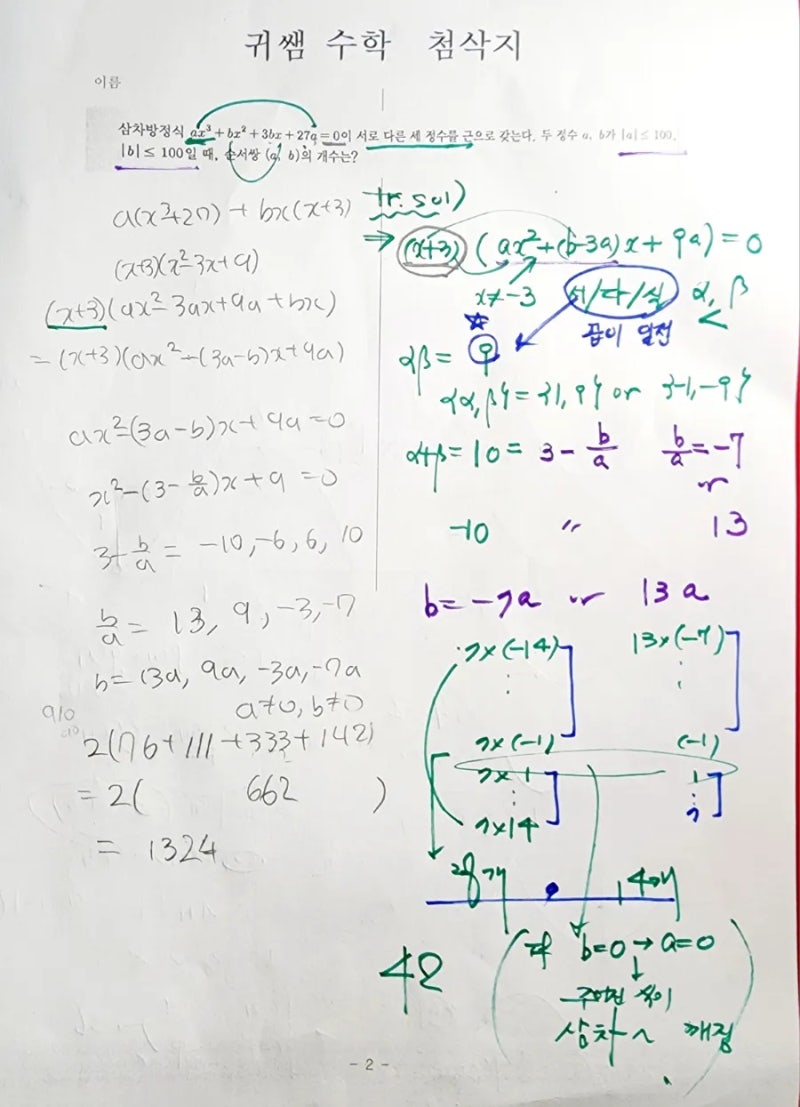 귀쌤 수학 첨삭지
이름
삼차방정식 ax³ + bx² + 3bx + 27a = 0이 서로 다른 세 정수를 근으로 갖는다. 두 정수 a, b가 |a| ≤ 100,
|b| ≤ 100일 때, 순서쌍 (a, b)의 개수는?
a(x³+27) + bx(x+3)
(x+3)(x²-3x+9)
(x+3)(ax²-3ax+9a+bx)
= (x+3)(ax²-(3a-b)x+9a)
ax²-(3a-b)x+9a=0
x²-(3-b/a)x+9=0
3-b/a = -10, -6, 6, 10
b/a = 13, 9, -3, -7
b=13a, 9a, -3a, -7a
a≠0, b≠0
2(76+111+333+142)
= 2( 662 )
= 1324
tr. sol)
⇒ (x+3) (ax²+(b-3a)x+9a)=0
x≠-3 서/다/실 α, β
<
☆ 곱이 일정
αβ = 9
{α, β}={1, 9} or {-1, -9}
α+β=10 = 3 - b/a b/a=-7
or
-10 〃 13
b=-7a or 13a
7×(-14) 13×(-7)
⋮ ⋮
7×(-1) (-1)
7×1 1
⋮ ⋮
7×14 7
28개 14개
42
b=0→a=0
↓
주어진 식이
삼차~ 깨짐
- 2 -